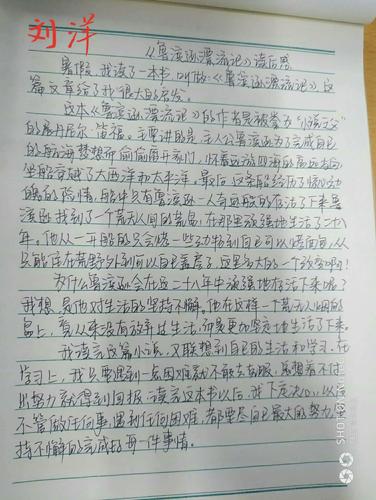 刘洋
《鲁滨逊漂流记》读后感
暑假,我读了一本书,叫做《鲁滨逊漂流记》这
篇文章给了我很大的启发。
这本《鲁滨逊漂流记》的作者是被誉为“小说之父”
的丹尼尔·笛福。主要讲的是:主人公鲁滨逊为了完成自己
的航海梦想而偷偷离开家门,怀着远游四海的高远志向
坐船穿越了大西洋和太平洋。最后,这条船经历了惊心动
魄的险情,船中只有鲁滨逊一人奇迹般的存活了下来鲁
滨逊找到了一个荒无人间的荒岛,在那里顽强地生活了二十八
年。他从一开始的只会烤一些动物到自己可以烤面包,从
只能住在荒野外到可以自己盖房子,这是多大的一个改变啊!
为什么鲁滨逊会在这二十八年中顽强地存活下来呢?
我想,是他对生活的坚持不懈。他在这样一个荒无人烟的
岛上,看从来没有放弃过生活,而是更加坚定地生活了下来。
我读完这篇小说,又联想到自己的生活和学习。在
学习上,我只要遇到一点困难就不敢去克服,总想着不付
出努力就得到回报。读完这本书以后,我下定决心,以后
不管做任何事,遇到任何困难,都要尽自己最大的努力,坚
持不懈的完成好每一件事情。
SHOT ON